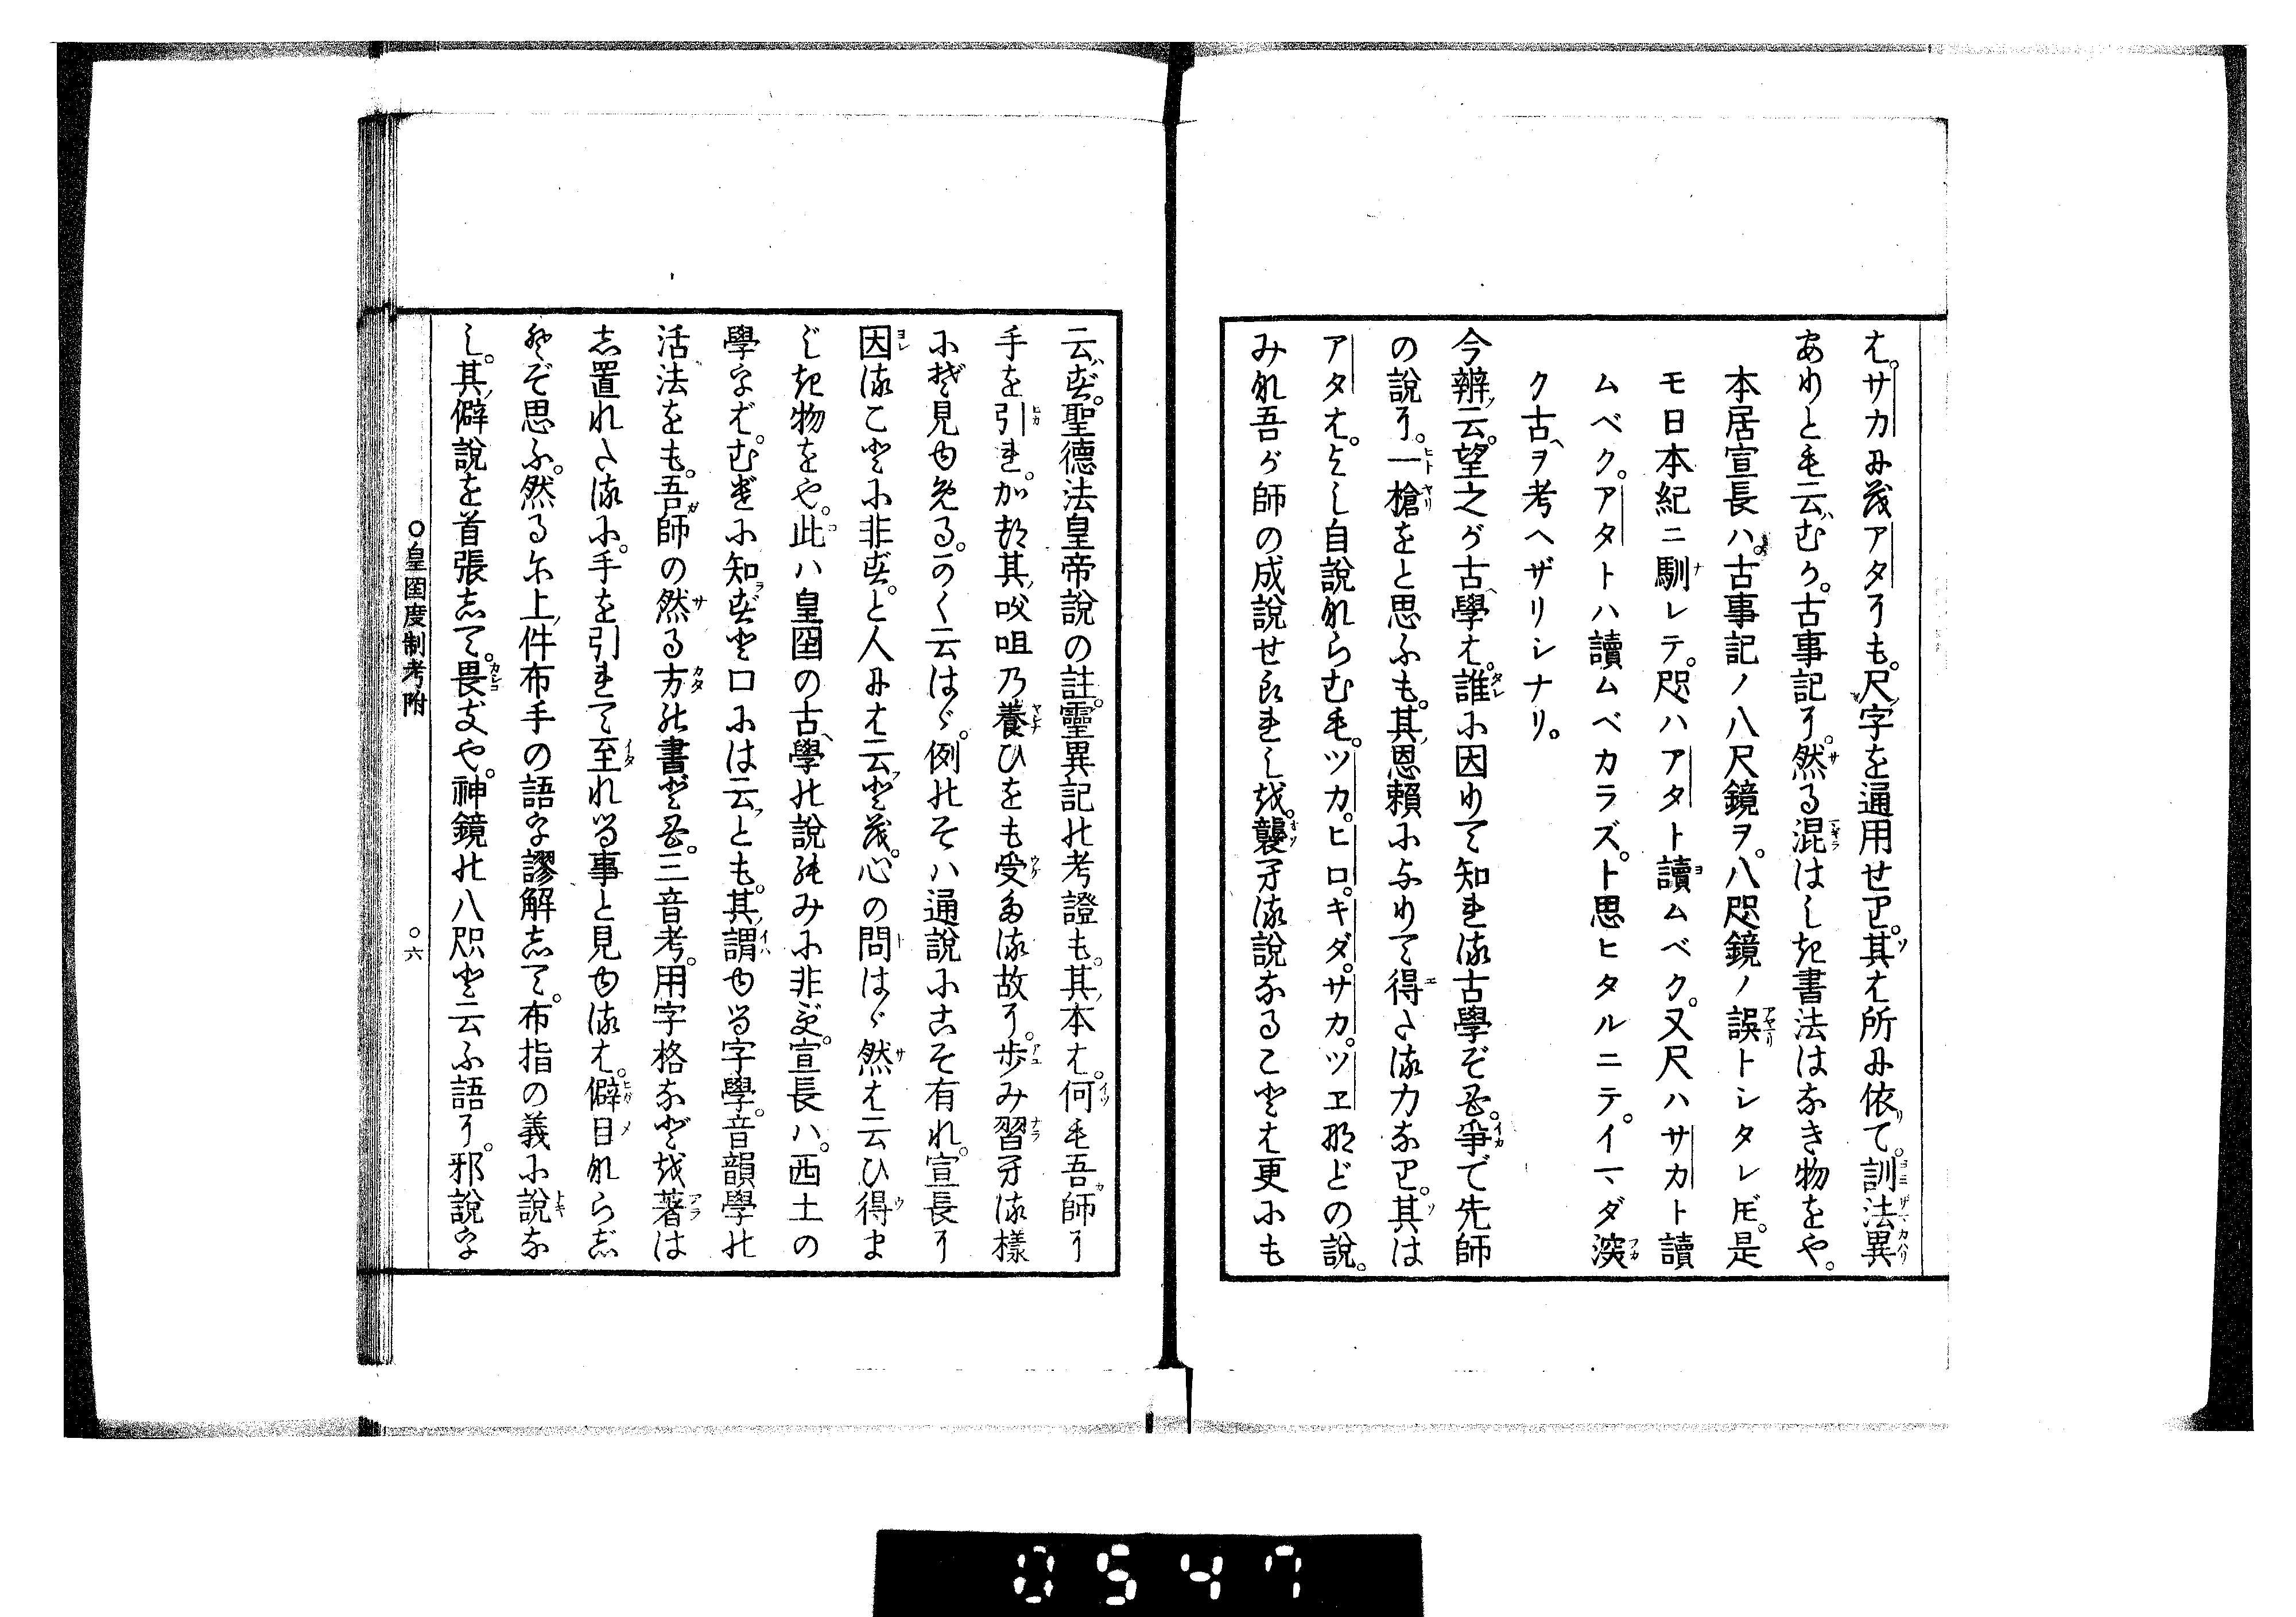 は。サカにまれアタにも。尺ノ字を通用せり。其は所に依りて。訓法異
ありとも云むか。古事記に。然る混はしき書法はなき物をや。
本居宣長ハ。古事記ノ八尺鏡ヲ。八咫鏡ノ誤トシタレド。是
モ日本紀ニ馴レテ。咫ハアタト讀ムベク。又尺ハサカト讀
ムベク。アタトハ讀ムベカラズ。ト思ヒタルニテ。イマダ深
ク古ヘヲ考ヘザリシナリ。
今辨ノ云。望之が古ヘ學は。誰に因りて知れる古學ぞも。爭で先師
の說に。一槍をと思ふも。其ノ恩賴に与りて得たる力なり。其は
アタは。よし自說ならむも。ツカ。ヒロ。キダ。サカ。ツヱなどの說。
みな吾が師の成說せられしを。襲たる說なること は更にも
云はず。聖德法皇帝說の註。靈異記の考證も。其ノ本は。何も吾師に
手を引れ。かつ其ノ咬咀乃養ひをも受たる故に。歩み習たる樣
にぞ見ゆめる。かく云はゞ。例のそハ通說にこそ有れ。宣長に
因ることに非ず。と人には云フとも。心の問はゞ然は云ひ得ま
じき物をや。此ハ皇國の古ヘ學の說のみに非ず。宣長ハ。西土の
學字ば。むげに知ラずと口には云フとも。其ノ謂ゆる字學。音韻學の
活法をも。吾ガ師の然る方の書ども。三音考。用字格などを著は
し置れたるに。手を引れて至れる事と見ゆるは。僻目ならじ
とぞ思ふ。然るに上ノ件布手の語字謬解して。布指の義に說な
し。其ノ僻說を首張して。畏きや。神鏡の八咫と云ふ語に。邪說字
○皇國度制考附
○六
0547